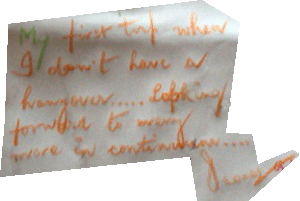 My first trip when
I don't have a
hangover.... Looking
forward to many
more in continuation....